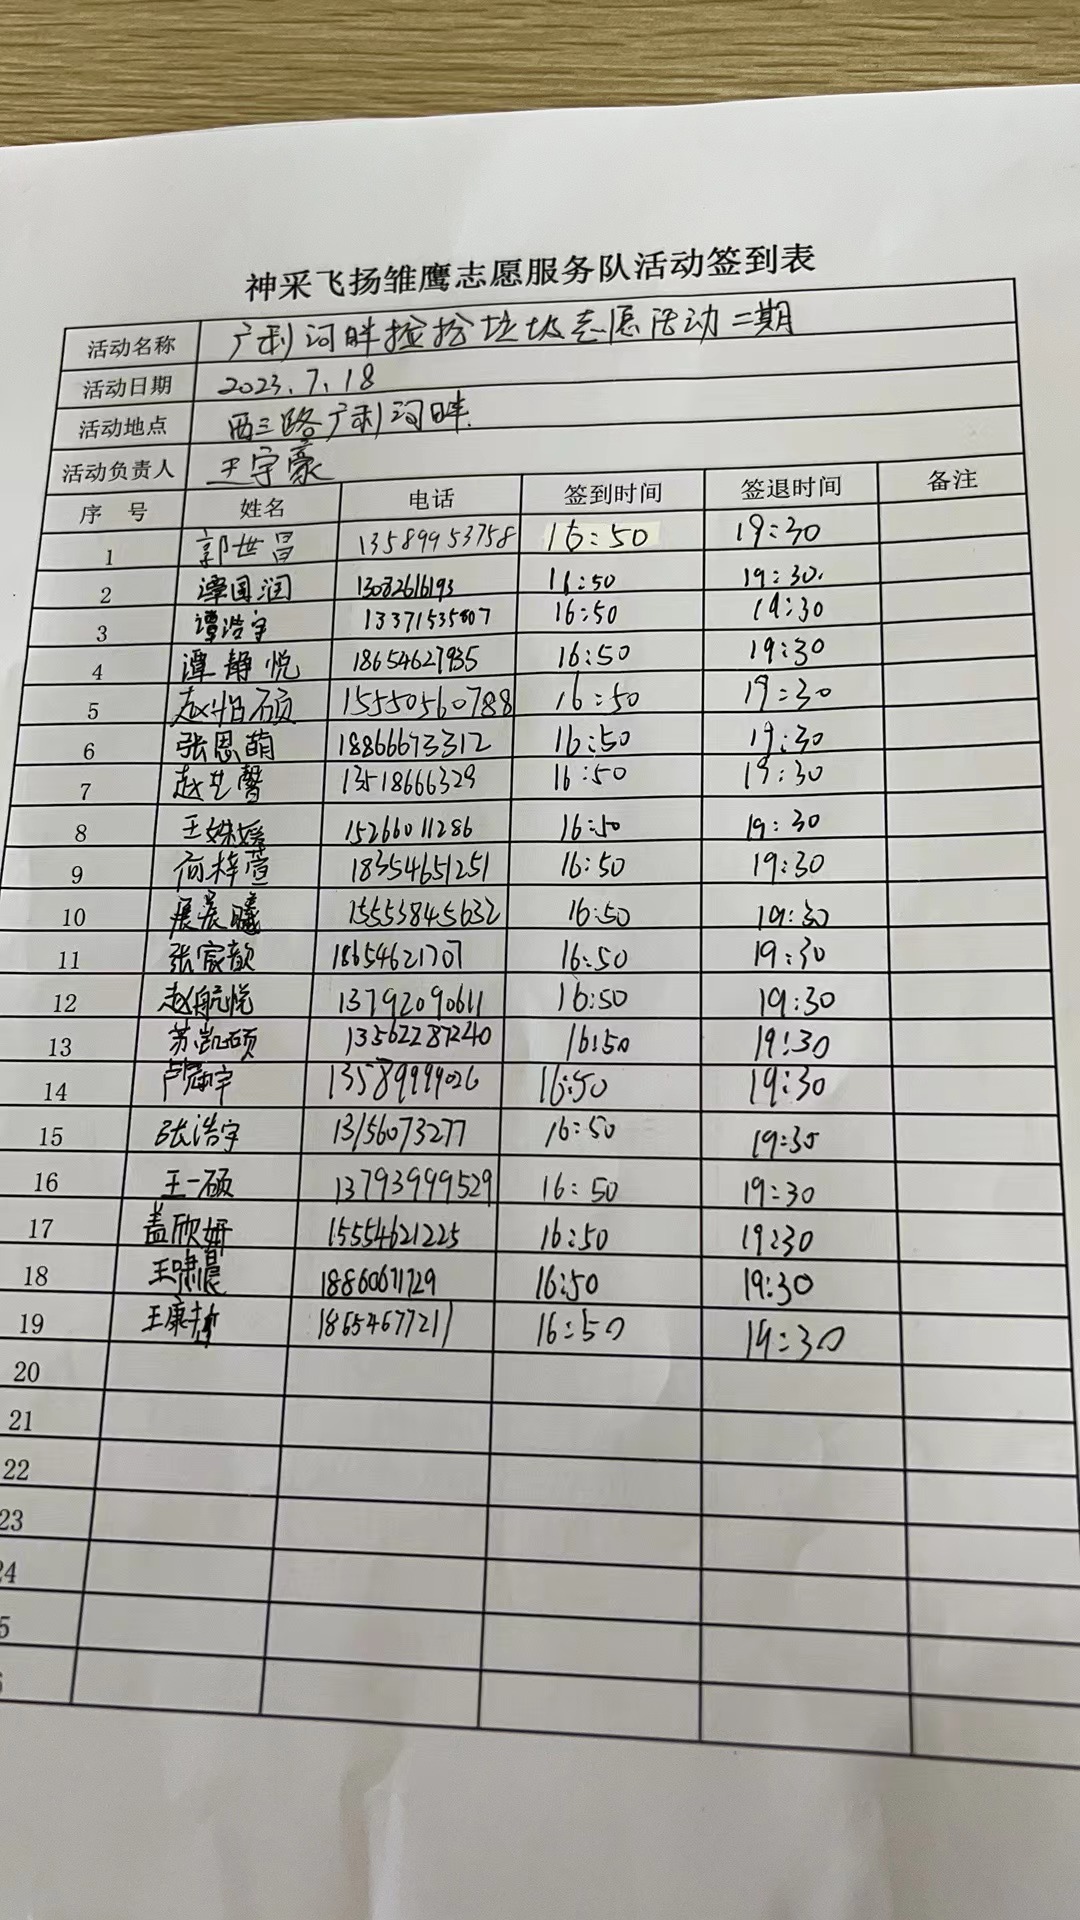 神采飞扬雏鹰志愿服务队活动签到表
活动名称 广利河畔捡拾垃圾志愿活动二期
活动日期 2023.7.18
活动地点 西三路广利河畔
活动负责人 王宇豪
序 号 姓名 电话 签到时间 签退时间 备注
1 郭世昌 13589953758 16:50 19:30
2 谭国润 13082616193 16:50 19:30.
3 谭浩宇 13371535807 16:50 19:30
4 谭静悦 18654627935 16:50 19:30
5 赵怡硕 15550560788 16:50 19:30
6 张思萌 18866673312 16:50 19:30
7 赵艺馨 13518666329 16:50 19:30
8 王姝媛 15266011286 16:50 19:30
9 何梓萱 18354651251 16:50 19:30
10 展晨曦 15553845632 16:50 19:30
11 张家歆 18654621707 16:50 19:30
12 赵航悦 13792090611 16:50 19:30
13 苏凯硕 13562287240 16:50 19:30
14 卢冠宇 13589999026 16:50 19:30
15 张浩宇 13156073277 16:50 19:30
16 王一硕 13793999529 16:50 19:30
17 盖欣妍 15554621225 16:50 19:30
18 王啸晨 18860671729 16:50 19:30
19 王康哲 18654677211 16:50 19:30
20
21
22
23
24
5